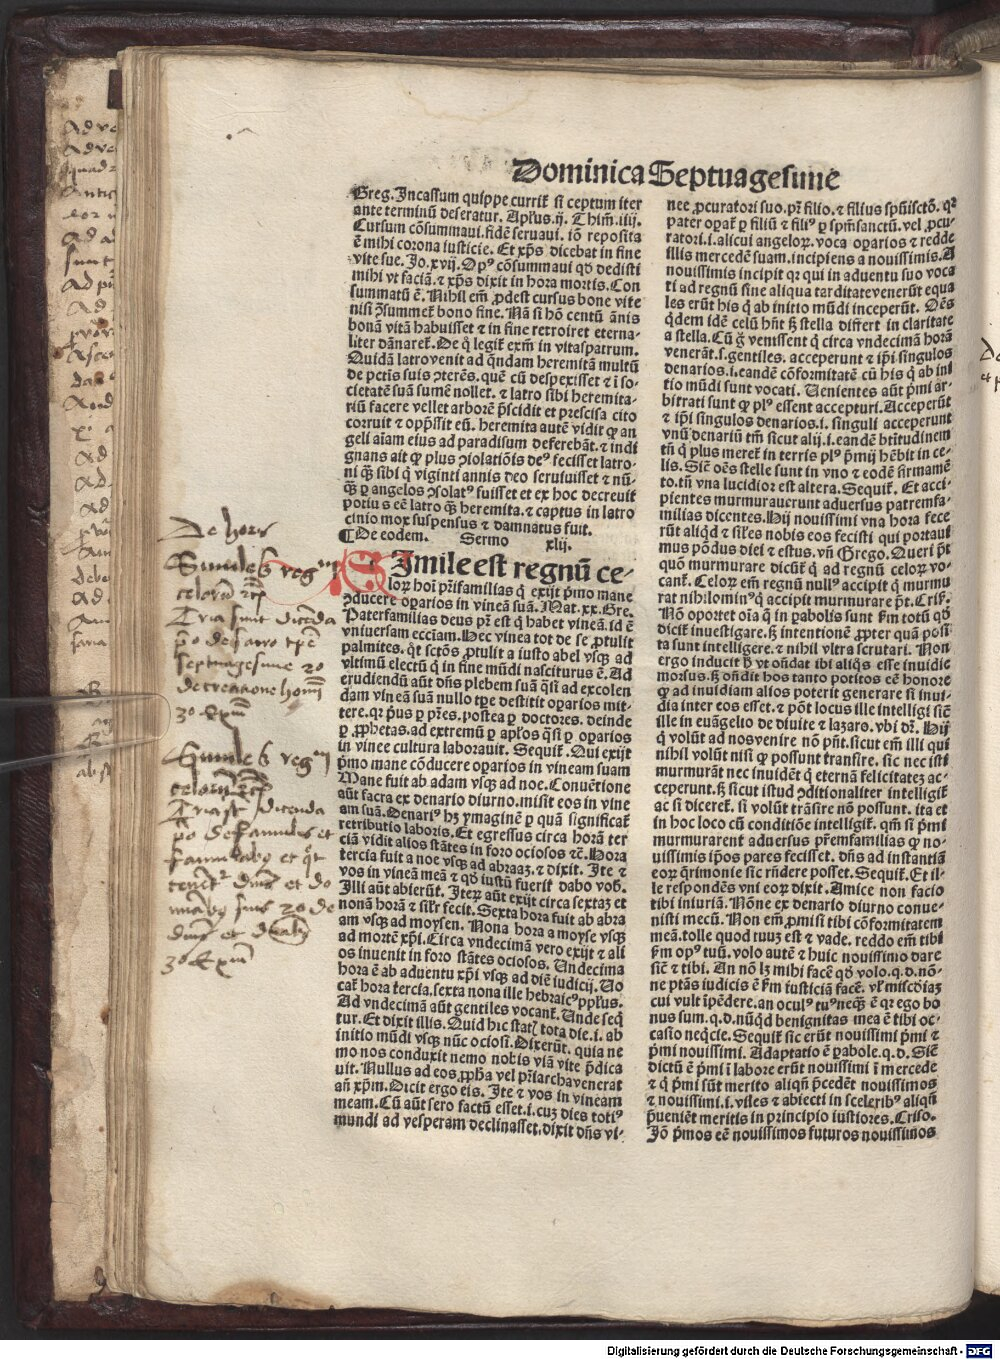 Dominica Septuagesime
Greg. Incassum quippe currit̄ si ceptum iter
ante terminū deseratur. Apl'us. ij. Thim̄. iiij.
Cursum cōsummaui. fidē seruaui. iō reposita
ē mihi corona iusticie. Et xp̄s dicebat in fine
vite sue. Jo. xvij. Opꝰ cōsummaui qd̄ dedisti
mihi vt faciā. ⁊ xp̄s dixit in hora mortis. Con
summatū ē. Nihil em̄ ꝓdest cursus bone vite
nisi ꝯsummet̄ bono fine. Nā si hō centū ānis
bonā vitā habuisset ⁊ in fine retroiret eterna-
liter dānaret̄. De q̄ legit̄ exm̄ in vitaspatrum.
Quidā latro venit ad q̄ndam heremitā multū
de pctīs suis ꝯterēs. quē cū despexisset ⁊ ī so-
cietatē suā sumē nollet. ⁊ latro sibi heremita-
riū facere vellet arborē p̄scidit et prescisa cito
corruit ⁊ opp̄ssit eū. heremita autē vidit ꝙ an
geli aīam eius ad paradisum deferebāt. ⁊ indi
gnans ait ꝙ plus ꝯsolatiōis deꝰ fecisset latro-
ni q̄ꝫ sibi q̄ viginti annis deo seruiuisset ⁊ nū-
q̄ꝫ ꝑ angelos ꝯsolatꝰ fuisset et ex hoc decreuit
potius eē latro q̄ꝫ heremita. ⁊ captus in latro
cinio mox suspensus ⁊ damnatus fuit.
¶ De eodem. Sermo xlij.
SImile est regnū ce-
loꝝ hoī pr̄ifamilias q̄ exijt p̄mo mane
ꝯducere oꝑarios in vineā suā. Mat. xx. Gre.
Paterfamilias deus pr̄ est q̄ habet vineā. id ē
vniuersam ecc̄iam. Hec vinea tot de se ꝓtulit
palmites. qt̄ sctōs ꝓtulit a iusto abel vsqꝫ ad
vltimū electū q̄ in fine mūdi nasciturus ē. Ad
erudiendū aūt dn̄s plebem suā q̄si ad excolen
dam vineā suā nullo tp̄e destitit oꝑarios mit-
tere. qꝛ p̄us ꝑ pr̄es. postea ꝑ doctores. deinde
ꝑ ꝓphetas. ad extremū ꝑ apl'os q̄si ꝑ oꝑarios
in vinee cultura laborauit. Sequit̄. Qui exijt
p̄mo mane cōducere oꝑarios in vineam suam
Mane fuit ab adam vsqꝫ ad noe. Conuētione
aūt facta ex denario diurno. misit eos in vine
am suā. Denariꝰ hꝫ ymaginē ꝑ quā significat̄
retributio laboris. Et egressus circa horā ter
ciā vidit alios stātes in foro ociosos ⁊c̄. Hora
tercia fuit a noe vsqꝫ ad abraaꝫ. ⁊ dixit. Ite ⁊
vos in vineā meā ⁊ qd̄ iustū fuerit dabo vob̄.
Illi aūt abierūt. Iteꝝ aūt exijt circa sextaꝫ et
nonā horā ⁊ sil'r fecit. Sexta hora fuit ab abra
am vsqꝫ ad moysen. Nona hora a moyse vsqꝫ
ad mortē xp̄i. Circa vndecimā vero exijt ⁊ ali
os inuenit in foro stātes ociosos. Undecima
hora ē ab aduentu xp̄i vsqꝫ ad diē iudicij. Uo
cat̄ hora tercia. sexta nona ille hebraicꝰ pp̄l'us.
Ad vndecimā aūt gentiles vocant̄. Unde seq̄
tur. Et dixit illis. Quid hic stat̄ tota die. i. ab
initio mūdi vsqꝫ nūc ociosi. Dixerūt. quia ne
mo nos conduxit nemo nobis viā vite p̄dica
uit. Nullus ad eos ꝓph̄a vel pr̄iarcha venerat
añ xp̄m. Dicit ergo eis. Ite ⁊ vos in vineam
meam. Cū aūt sero factū esset. i. cuꝫ dies totiꝰ
mundi ad vesperam declinasset. dixit dn̄s vi-
nee ꝓcuratori suo. pr̄ filio. ⁊ filius sp̄ūi sctō. qꝛ
pater oꝑat̄ ꝑ filiū ⁊ filiꝰ ꝑ sp̄m sanctū. vel ꝓcu-
ratori. i. alicui angeloꝝ. voca oꝑarios ⁊ redde
illis mercedē suam. incipiens a nouissimis. A
nouissimis incipit qꝛ qui in aduentu suo voca
ti ad regnū sine aliqua tarditate venerūt equa
les erūt his q̄ ab initio mūdi inceperūt. Oēs
q̄dem idē celū hn̄t sꝫ stella differt in claritate
a stella. Cū ḡ venissent q̄ circa vndecimā horā
venerāt. s. gentiles. acceperunt ⁊ ip̄i singulos
denarios. i. eandē cōformitatē cū his q̄ ab ini
tio mūdi sunt vocati. Uenientes aūt p̄mi ar-
bitrati sunt ꝙ plꝰ essent accepturi. Acceperūt
⁊ ip̄i singulos denarios. i. singuli acceperunt
vnū denariū tm̄ sicut alij. i. eandē btītudinem
tn̄ q̄ plus meret̄ in terris plꝰ p̄mij hēbit in ce-
lis. Sic̄ oēs stelle sunt in vno ⁊ eodē firmamē
to. tn̄ vna lucidior est altera. Sequit̄. Et acci-
pientes murmurauerunt aduersus patremfa-
milias dicentes. Hij nouissimi vna hora fece
rūt aliqd̄ ⁊ sil'es nobis eos fecisti qui portaui
mus pōdus diei ⁊ estus. vn̄ Grego. Queri p̄t
quō murmurare dicūt̄ q̄ ad regnū celoꝝ vo-
cant̄. Celoꝝ em̄ regnū nullꝰ accipit q̄ murmu
rat nihilominꝰ q̄ accipit murmurare p̄t. Cris̄.
Nō oportet oīa q̄ in ꝑabolis sunt ẜm totū qd̄
dicit̄ inuestigare. sꝫ intentionē ꝓpter quā posi
ta sunt intelligere. ⁊ nihil vltra scrutari. Non
ergo inducit h̄ vt oñdat ibi aliq̄s esse inuidie
morsus. sꝫ oñdit hos tanto potitos eē honore
ꝙ ad inuidiam alios poterit generare si inui-
dia inter eos esset. ⁊ pōt locus ille intelligi sic̄
ille in euāgelio de diuite ⁊ lazaro. vbi dr̄. Hij
q̄ volūt ad nos venire nō pn̄t. sicut em̄ illi qui
nihil volūt nisi ꝙ possunt trāsire. sic nec isti
murmurāt nec inuidēt q̄ eternā felicitatez ac-
ceperunt. sꝫ sicut istud ꝯditionaliter intelligit̄
ac si diceret. si volūt trāsire nō possunt. ita et
in hoc loco cū conditiōe intelligit̄. qm̄ si p̄mi
murmurarent aduersus pr̄emfamilias ꝙ no-
uissimis ip̄os pares fecisset. dn̄s ad instantiā
eoꝝ q̄rimonie sic rn̄dere posset. Sequit̄. Et il-
le respondēs vni eoꝝ dixit. Amice non facio
tibi iniuriā. Nōne ex denario diurno conue-
nisti mecū. Non em̄ ꝓmisi tibi cōformitatem
meā. tolle quod tuuꝫ est ⁊ vade. reddo em̄ tibi
ẜm opꝰ tuū. volo autē ⁊ huic nouissimo dare
sic̄ ⁊ tibi. An nō lꝫ mihi facē qd̄ volo. q. d. nō-
ne ptās iudicis ē ẜm iusticiā facē. vl' mīscdīaꝫ
cui vult īpēdere. an oculꝰ tuꝰ neqꝫ ē qꝛ ego bo
nus sum. q. d. nūqd̄ benignitas mea ē tibi oc-
casio neqc̄ie. Sequit̄ sic erūt nouissimi p̄mi ⁊
p̄mi nouissimi. Adaptatio ē ꝑabole. q. d. Sic̄
dictū ē p̄mi ī labore erūt nouissimi ī mercede
⁊ q̄ p̄mi sūt merito aliqn̄ p̄cedēt nouissimos
⁊ nouissimi. i. viles ⁊ abiecti in sceleribꝰ aliqn̄
p̄ueniēt meritis in principio iustiores. Criso.
Iō p̄mos eē nouissimos futuros nouissimos
De hors
Simile ē regnū
celorū ⁊c
Tria sunt dicenda
p̄o de sacro tp̄e
septuagesime 2o
de creatione homīs
3o
Simile ē regnū
celorū ⁊c
Tria st̄ dicenda
p̄o de famulis et
Digitalisierung gefördert durch die Deutsche Forschungsgemeinschaft - DFG